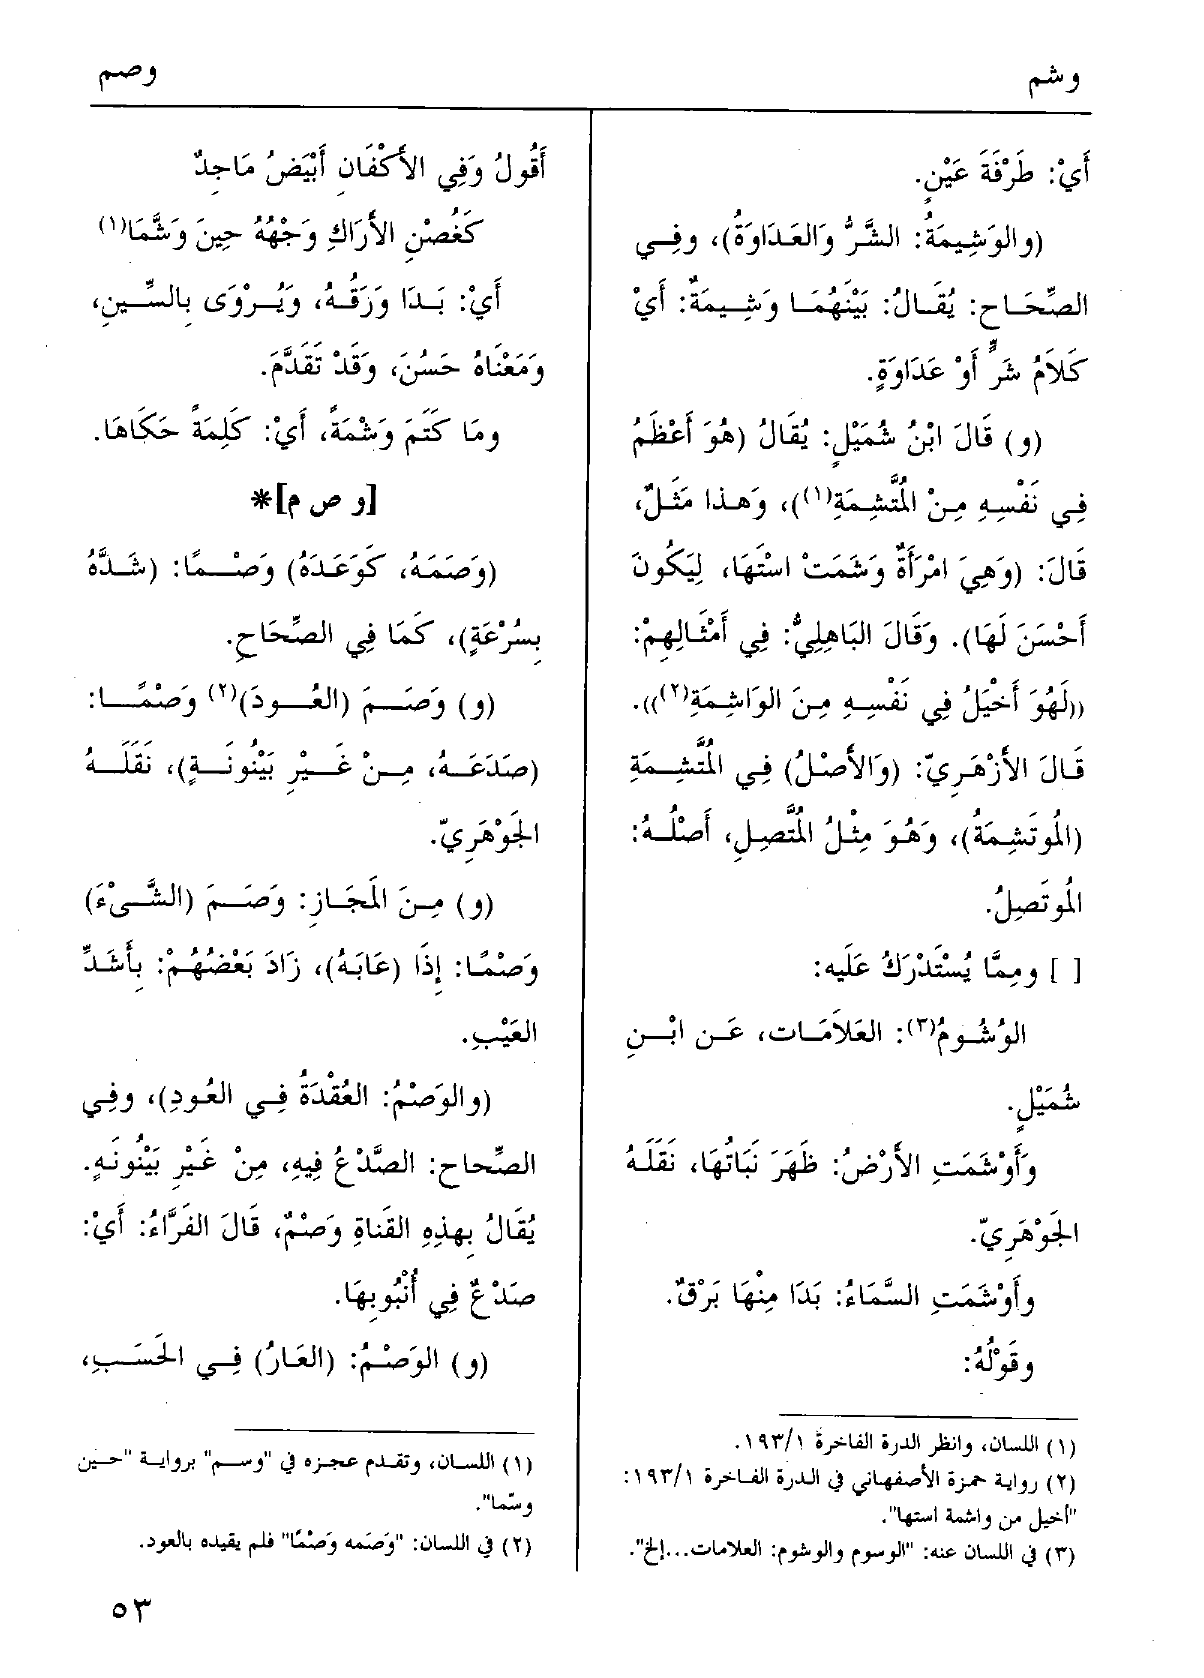 وشم
وصم
أَيْ: طَرْفَةَ عَيْنٍ.
(والوَشِيمَةُ: الشَّرُّ وَالعَدَاوَةُ)، وفِي
الصِّحَاحِ: يُقَالُ: بَيْنَهُمَا وَشِيمَةٌ: أَيْ
كَلَامُ شَرٍّ أَوْ عَدَاوَةٍ.
(و) قَالَ ابْنُ شُمَيْلٍ: يُقَالُ (هُوَ أَعْظَمُ
فِي نَفْسِهِ مِنْ الْمُتَّشِمَةِ(١))، وَهذا مَثَلٌ،
قَالَ: (وَهِيَ امْرَأَةٌ وَشَمَتْ اسْتَهَا، لِيَكُونَ
أَحْسَنَ لَهَا). وَقَالَ البَاهِلِيُّ: فِي أَمْثَالِهِمْ:
((لَهُوَ أَخْيَلُ فِي نَفْسِهِ مِنَ الوَاشِمَةِ(٢))).
قَالَ الأَزْهَرِيّ: (وَالأَصْلُ) فِي الْمُتَّشِمَةِ
(الْمُوتَشِمَةُ)، وَهُوَ مِثْلُ الْمُتَّصِلِ، أَصْلُهُ:
الْمُوتَصِلُ.
[ ] ومِمَّا يُسْتَدْرَكُ عَلَيه:
الوُشُومُ(٣): العَلاَمَات، عَن ابْنِ
شُمَيْلٍ.
وَأَوْشَمَتِ الأَرْضُ: ظَهَرَ نَبَاتُهَا، نَقَلَهُ
الجَوْهَرِيّ.
وأَوْشَمَتِ السَّمَاءُ: بَدَا مِنْهَا بَرْقٌ.
وقَوْلُهُ:
(١) اللسان، وانظر الدرة الفاخرة ١/١٩٣.
(٢) رواية حمزة الأصفهاني في الدرة الفاخرة ١/١٩٣:
"أخيل من واشمة استها".
(٣) في اللسان عنه: "الوسوم والوشوم: العلامات...إلخ".
أَقُولُ وَفِي الأَكْفَانِ أَبْيَضُ مَاجِدٌ
كَغُصْنِ الأَرَاكِ وَجْهُهُ حِينَ وَشَّمَا(١)
أَيْ: بَدَا وَرَقُهُ، وَيُرْوَى بِالسِّينِ،
وَمَعْنَاهُ حَسُنَ، وَقَدْ تَقَدَّمَ.
ومَا كَتَمَ وَشْمَةً، أَيْ: كَلِمَةً حَكَاهَا.
[و ص م]*
(وَصَمَهُ، كَوَعَدَهُ) وَصْمًا: (شَدَّهُ
بِسُرْعَةٍ)، كَمَا فِي الصِّحَاحِ.
(و) وَصَمَ (العُودَ)(٢) وَصْمًا:
(صَدَعَهُ، مِنْ غَيرِ بَيْنُونَةٍ)، نَقَلَهُ
الجَوْهَرِيّ.
(و) مِنَ الْمَجَازِ: وَصَمَ (الشَّيْءَ)
وَصْمًا: إِذَا (عَابَهُ)، زَادَ بَعْضُهُمْ: بِأَشَدِّ
العَيْبِ.
(والوَصْمُ: العُقْدَةُ فِي العُودِ)، وفِي
الصِّحاح: الصَّدْعُ فِيهِ، مِنْ غَيْرِ بَيْنُونَةٍ.
يُقَالُ بِهذِهِ القَناةِ وَصْمٌ، قَالَ الفَرَّاءُ: أَيْ:
صَدْعٌ فِي أُنْبُوبِهَا.
(و) الوَصْمُ: (العَارُ) فِي الحَسَبِ،
(١) اللسان، وتقدم عجزه في "وسم" برواية "حين
وسّما".
(٢) في اللسان: "وَصَمه وَصْمًا" فلم يقيده بالعود.
٥٣